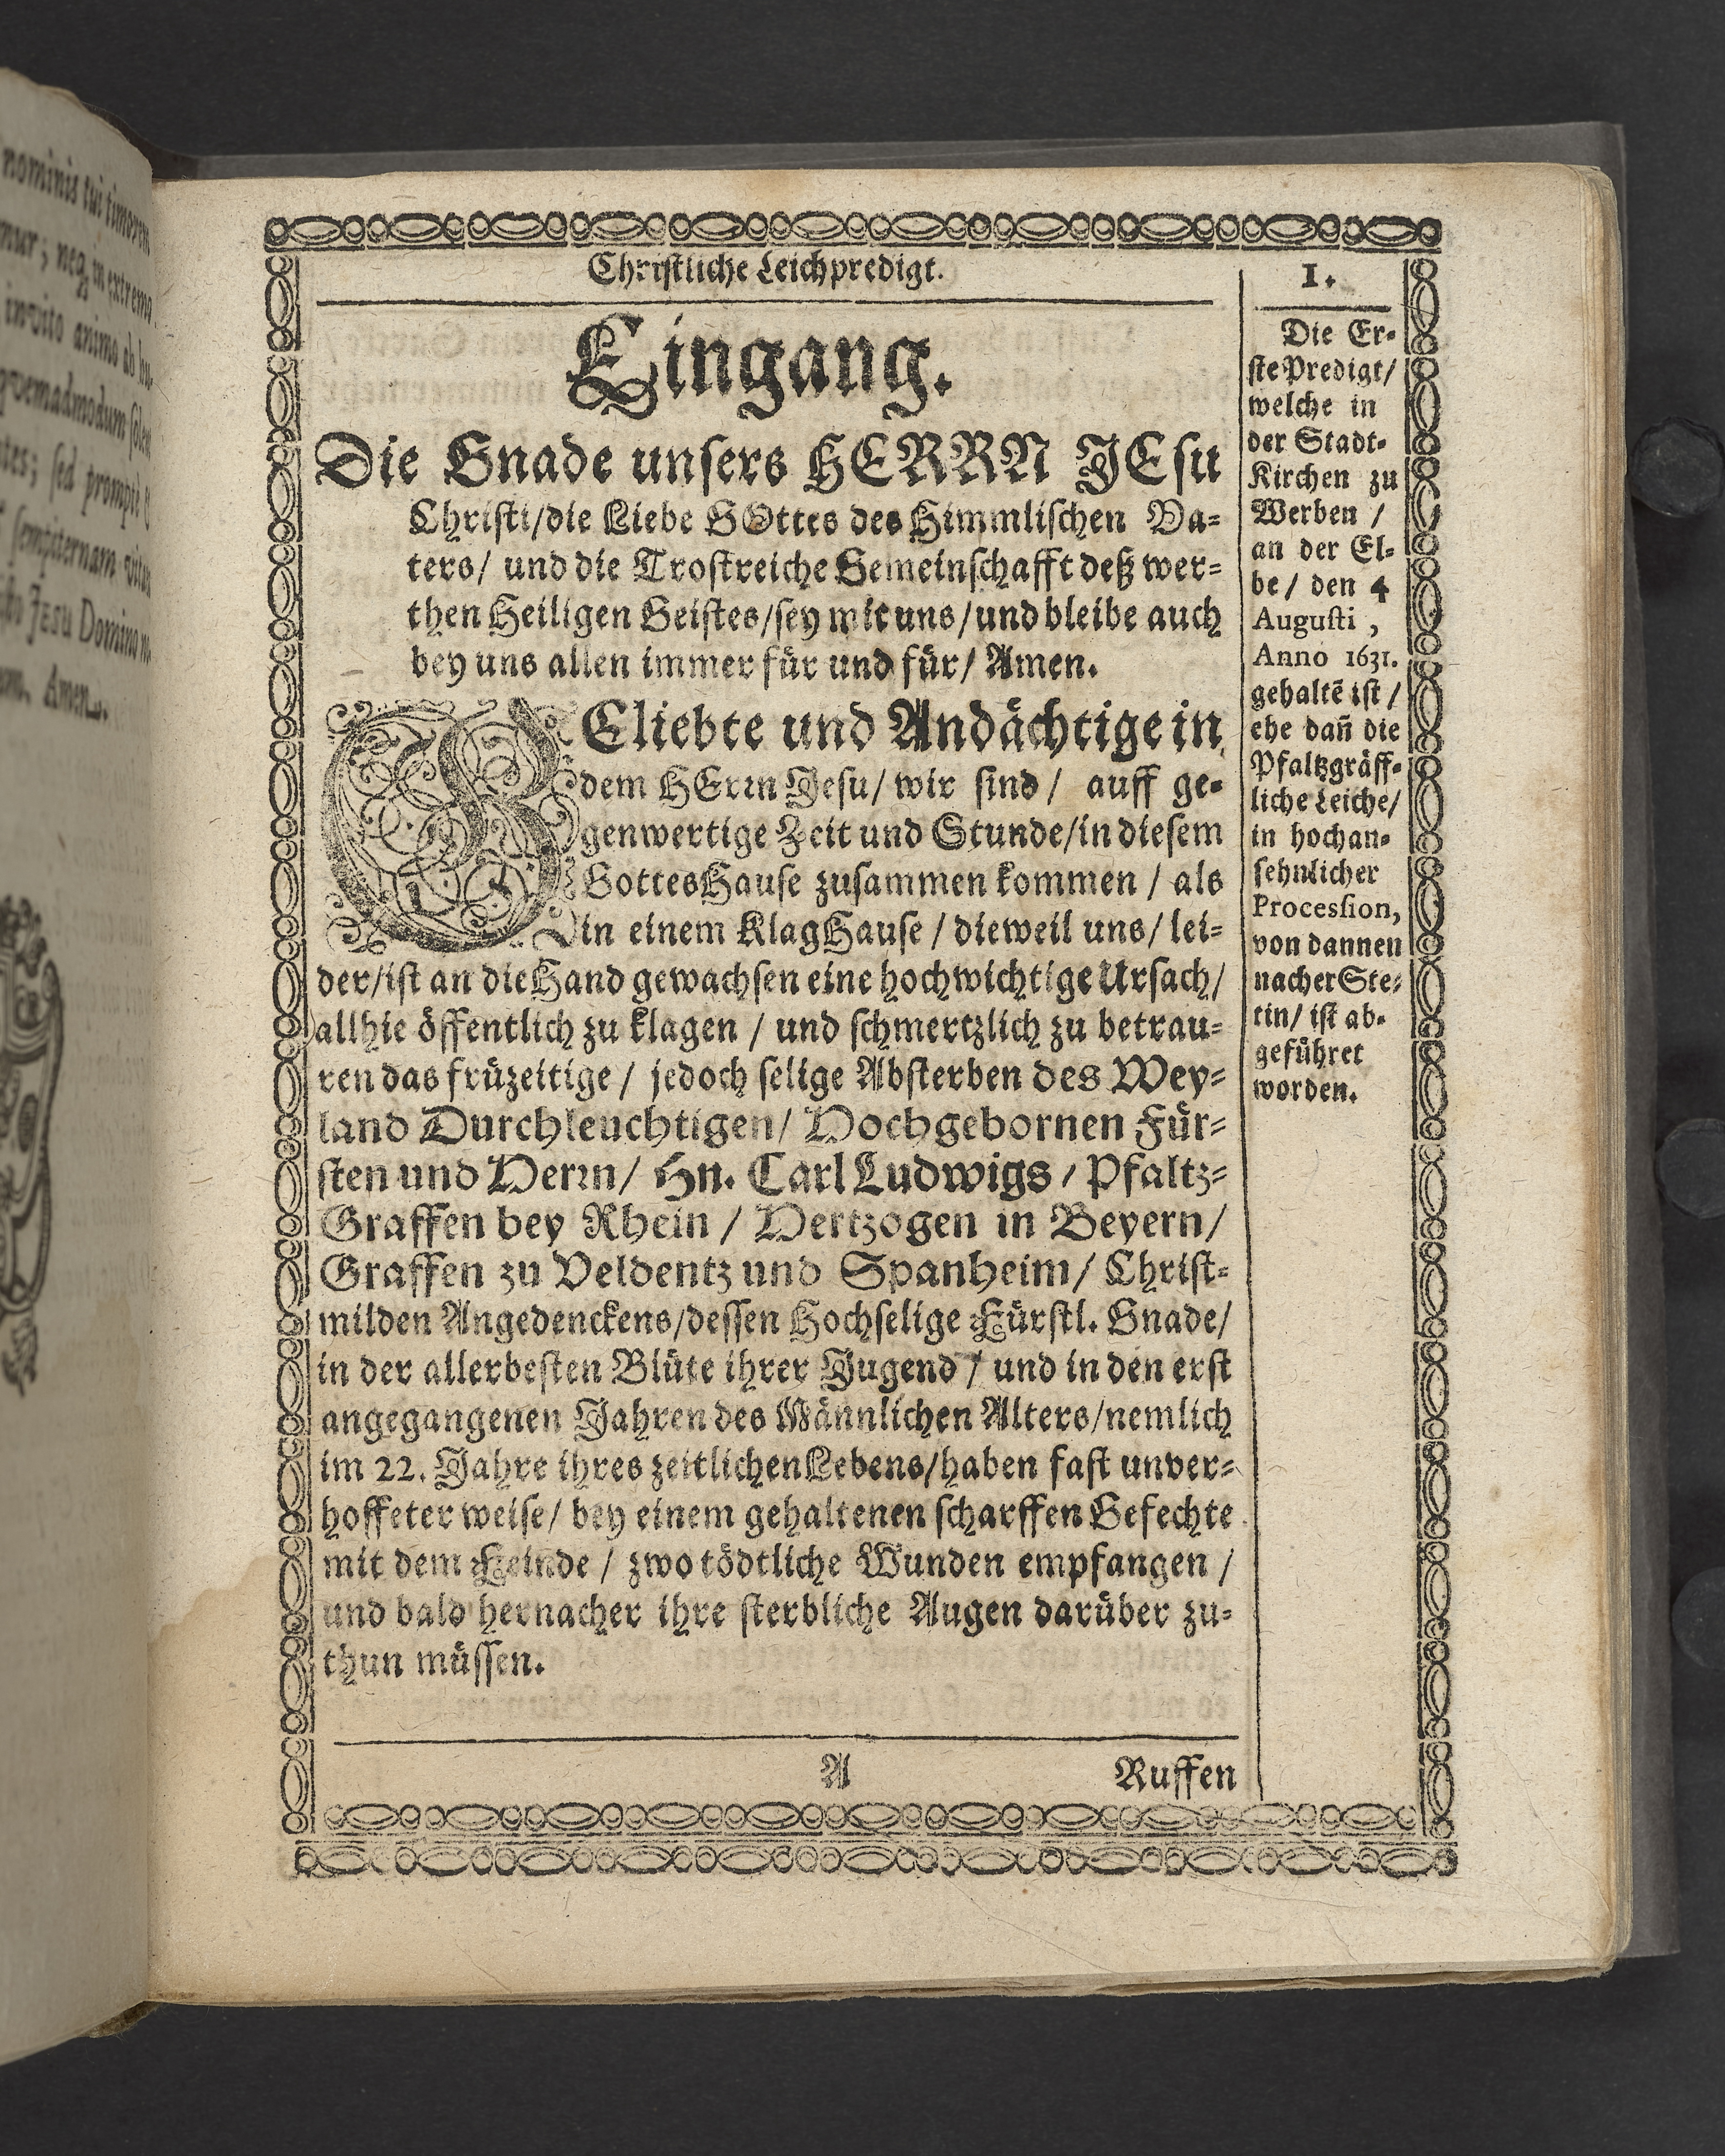 nominis tui timorem
mur; neq; in extremo
invito animo ab hu-
qvemadmodum
ntes; sed prompti &
sempiternam vitam
Jesu Domino
Amen.
Christliche Leichpredigt.
1.
Eingang.
Die Gnade unsers HERRN JEsu
Christi/die Liebe GOttes des Himmlischen Va-
ters/ und die Trostreiche Gemeinschafft deß wer-
then Heiligen Geistes/sey mit uns/und bleibe auch
bey uns allen immer für und für/ Amen.
GEliebte und Andächtige in
dem HErrn Jesu/ wir sind / auff ge-
genwertige Zeit und Stunde/in diesem
GottesHause zusammen kommen / als
in einem KlagHause / dieweil uns/ lei-
der/ist an die Hand gewachsen eine hochwichtige Ursach/
allhie öffentlich zu klagen / und schmertzlich zu betrau-
ren das früzeitige / jedoch selige Absterben des Wey-
land Durchleuchtigen/ Hochgebornen Für-
sten und Herrn/ Hn. Carl Ludwigs / Pfaltz-
Graffen bey Rhein / Hertzogen in Beyern/
Graffen zu Veldentz und Spanheim/ Christ-
milden Angedenckens/dessen Hochselige Fürstl. Gnade/
in der allerbesten Blüte ihrer Jugend / und in den erst
angegangenen Jahren des Männlichen Alters/nemlich
im 22. Jahre ihres zeitlichen Lebens/haben fast unver-
hoffeter weise/ bey einem gehaltenen scharffen Gefechte
mit dem Feinde / zwo tödtliche Wunden empfangen /
und bald hernacher ihre sterbliche Augen darüber zu-
thun müssen.
Die Er-
ste Predigt/
welche in
der Stadt-
Kirchen zu
Werben /
an der El-
be/ den 4
Augusti ,
Anno 1631.
gehaltē ist /
ehe dan̄ die
Pfaltzgräff-
liche Leiche/
in hochan-
sehnlicher
Procession,
von dannen
nacher Ste-
tin/ ist ab-
geführet
worden.
A
Ruffen